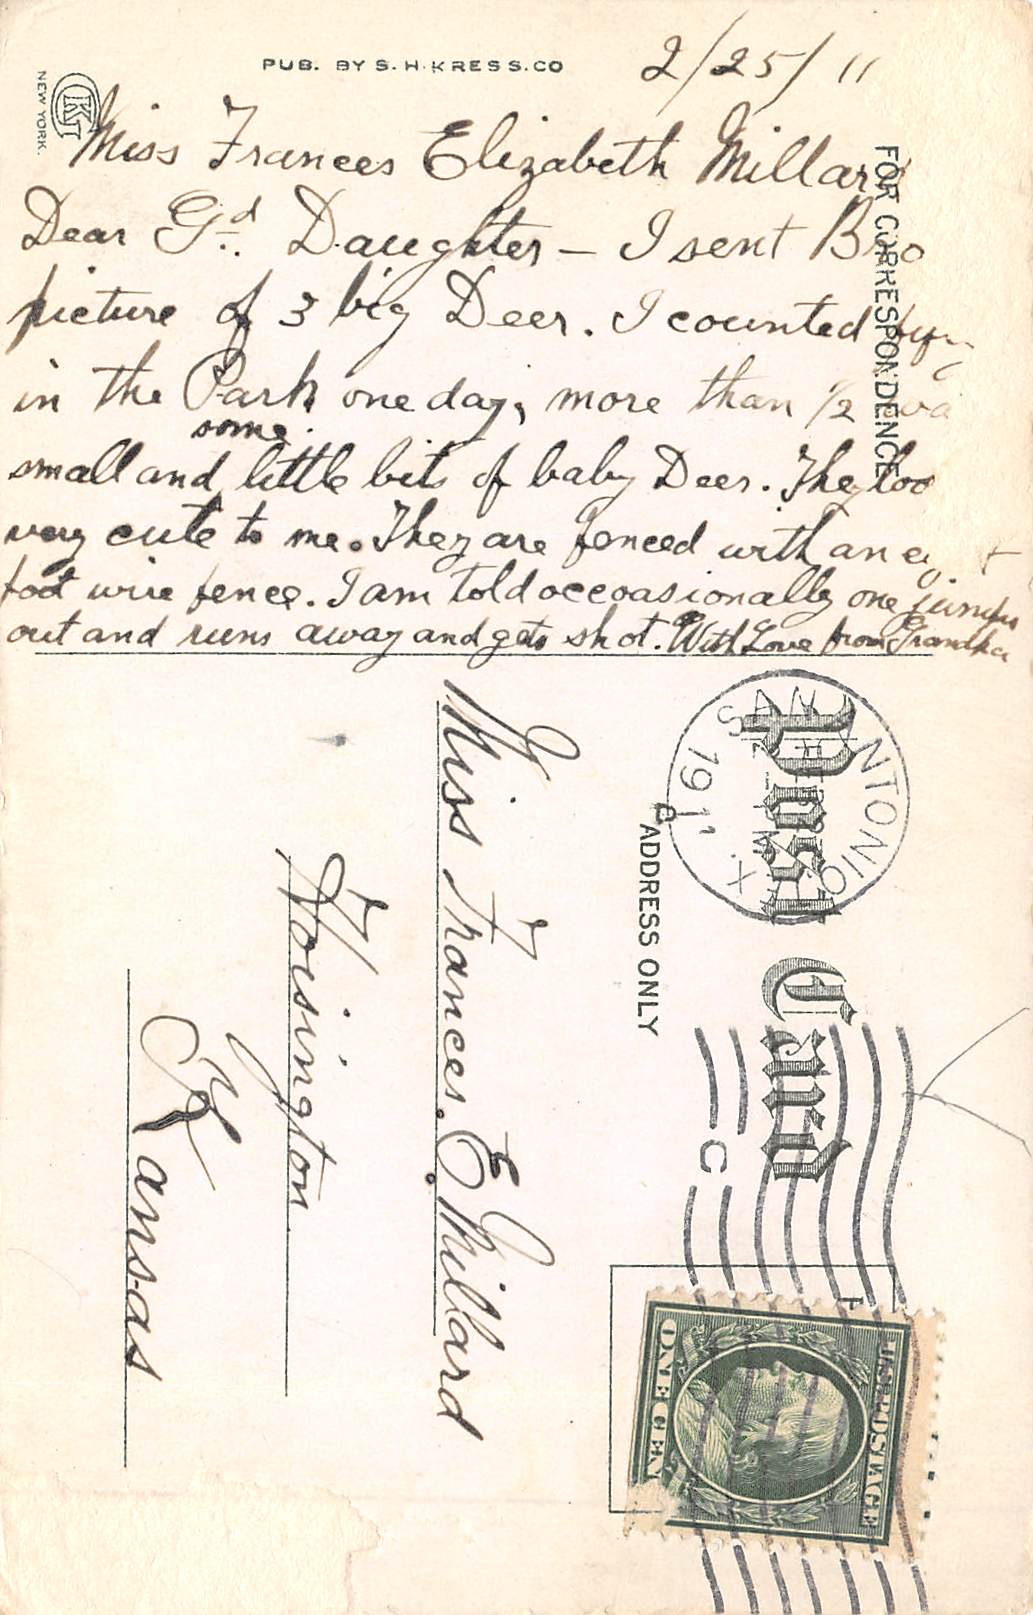 PUB. BY S. H. KRESS. CO
2/25/11
NEW YORK.
Miss Frances Elizabeth Millar
FOR CORRESPONDENCE
Dear Gd. Daughter – I sent Bro
picture of 3 big Deer. I counted
in the Park one day, more than 1/2 wa
some
small and little bits of baby Deer. They loo
very cute to me. They are fenced with an
foot wire fence. I am told occoasionally one jumps
out and runs away and gets shot. With Love from Grandpa
Post Card
ADDRESS ONLY
SAN ANTONIO
1911
C
Miss Frances. E. Millard
Hoisington
Kansas
U.S. POSTAGE
ONE CENT